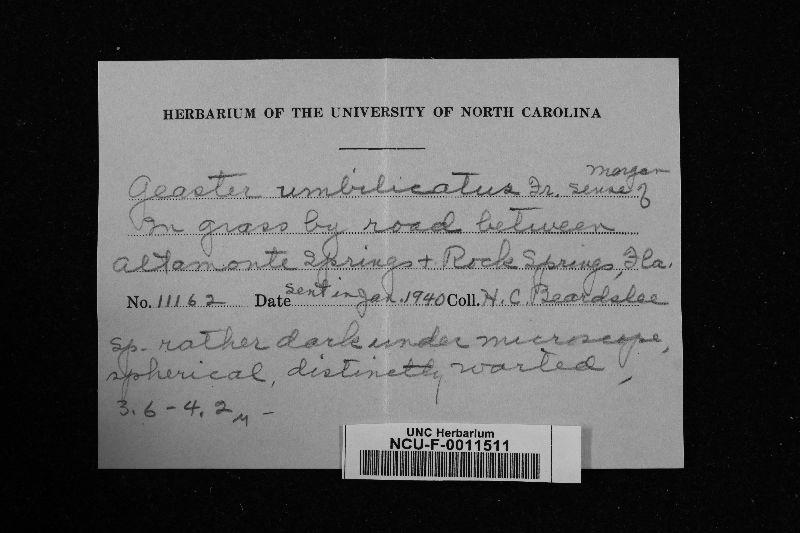 HERBARIUM OF THE UNIVERSITY OF NORTH CAROLINA
Geaster umbilicatus Fr. sense of Morgan
In grass by road between
Altamonte Springs + Rock Springs, Fla.
No. 11162 Date sent in Jan. 1940 Coll. H. C. Beardslee
Sp. rather dark under microscope,
spherical, distinctly warted,
3.6 - 4.2 μ -
UNC Herbarium
NCU-F-0011511